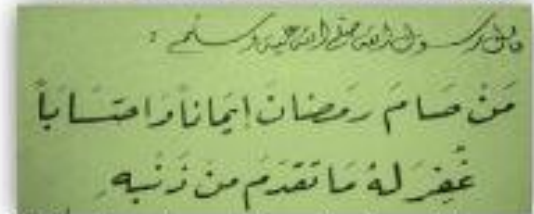 قال رسول الله صلى الله عليه وسلم :
مَنْ صَامَ رَمَضَانَ إِيمَاناً وَاحتسَاباً
غُفِرَ لَهُ مَا تَقَدَمَ مِنْ ذَنْبِهِ